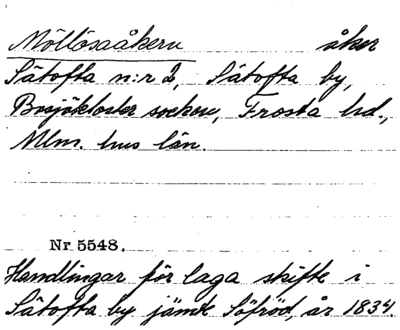 Möllösaåkern åker
Sätofta n:r 2, Sätofta by,
Bosjökloster socken, Frosta hd.,
Mlm. hus län.
Nr. 5548.
Handlingar för laga skifte i
Sätofta by jämte Söfröd år 1834.